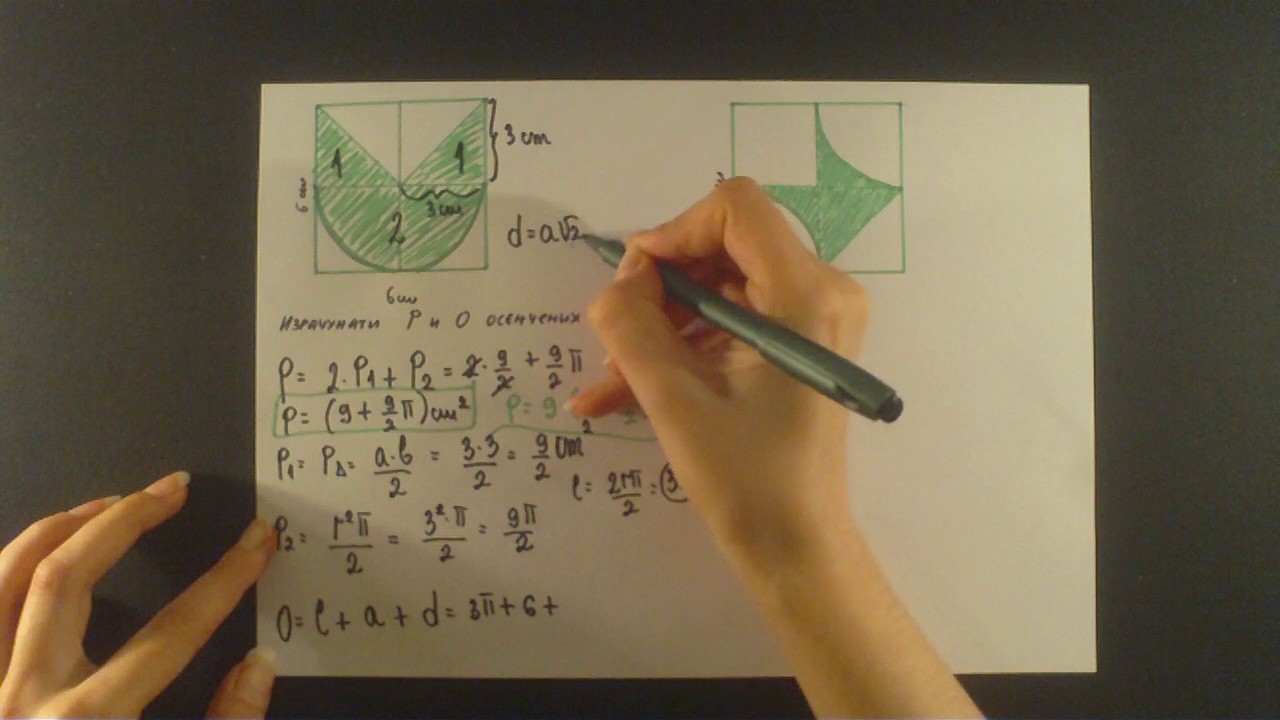 1 1 3 cm
6 cm 3 cm
2 d=a√2
6 cm
Израчунати P и O осенчених
P= 2·P₁+P₂ = 2·9/2 + 9/2 π
P= (9+9/2 π) cm² P= 9
P₁= P△= a·b/2 = 3·3/2 = 9/2 cm²
l= 2rπ/2 = 3
P₂= r²π/2 = 3²·π/2 = 9π/2
O= l + a + d = 3π + 6 +